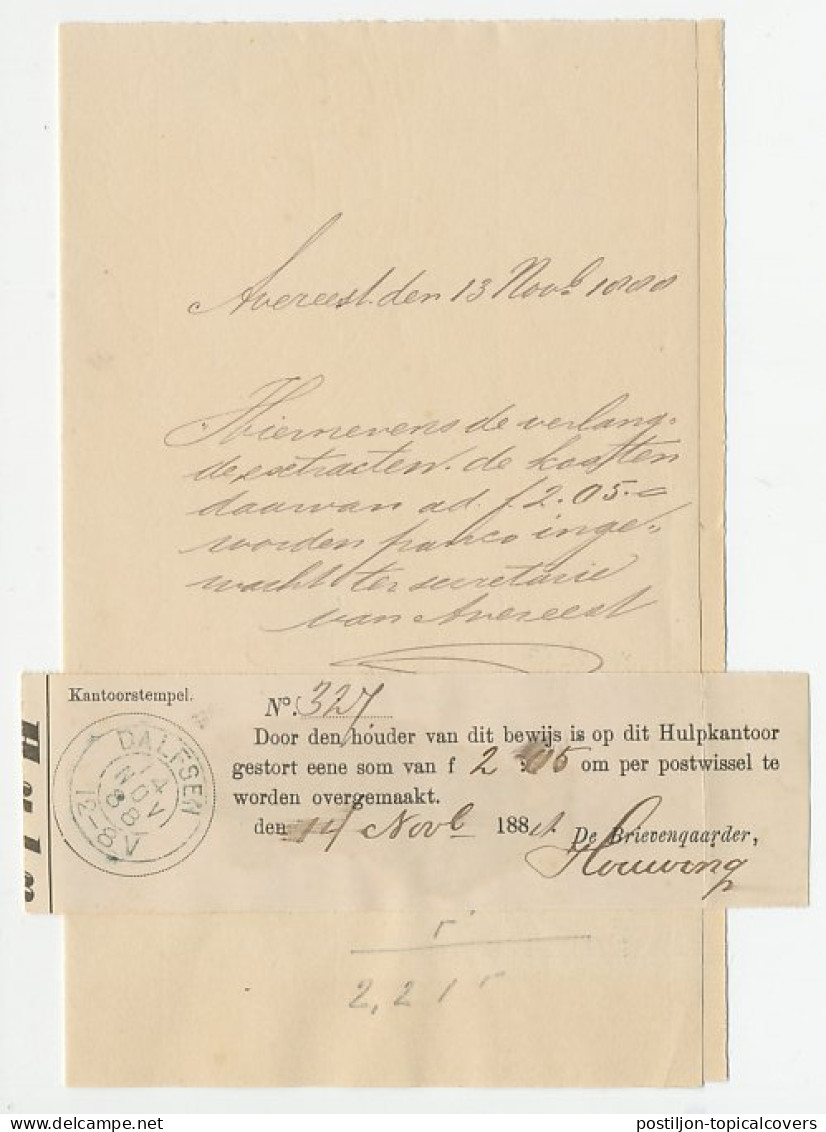 Avereest. den 13 Novb 1888
Hiernevens de verlang„
de extracten. de kosten
daarvan ad. f 2.05.-
worden franco inge„
wacht ter secretarie
van Avereest
Kantoorstempel.
No. 327
Door den houder van dit bewijs is op dit Hulpkantoor
gestort eene som van f 2 : 05 om per postwissel te
worden overgemaakt.
den 14 Novb 188
De Brievengaarder,
Houwing
DALFSEN
14
NOV
88
12-8V
2,215
postiljon-topicalcovers